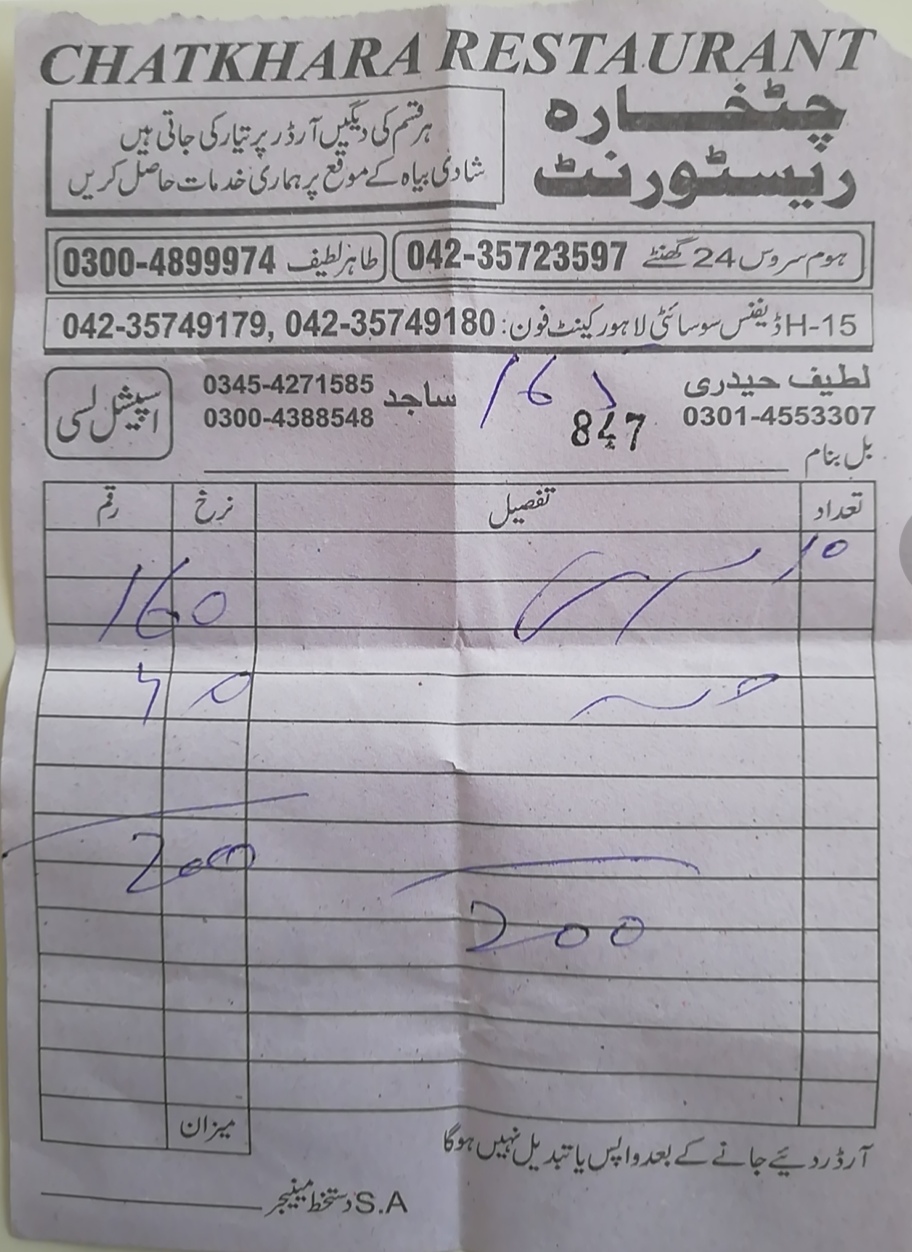 CHATKHARA RESTAURANT
چٹخارہ
ریسٹورنٹ
ہر قسم کی دیگیں آرڈر پر تیار کی جاتی ہیں
شادی بیاہ کے موقع پر ہماری خدمات حاصل کریں
ہوم سروس 24 گھنٹے 042-35723597
طاہر لطیف 0300-4899974
H-15 ڈیفنس سوسائٹی لاہور کینٹ فون: 042-35749179, 042-35749180
لطیف حیدری
0301-4553307
161
847
ساجد 0345-4271585
0300-4388548
اسپیشل لسی
بل بنام
تعداد تفصیل نرخ رقم
10
160
40
200
200
میزان
آرڈر دیئے جانے کے بعد واپس یا تبدیل نہیں ہوگا
S.A دستخط مینیجر